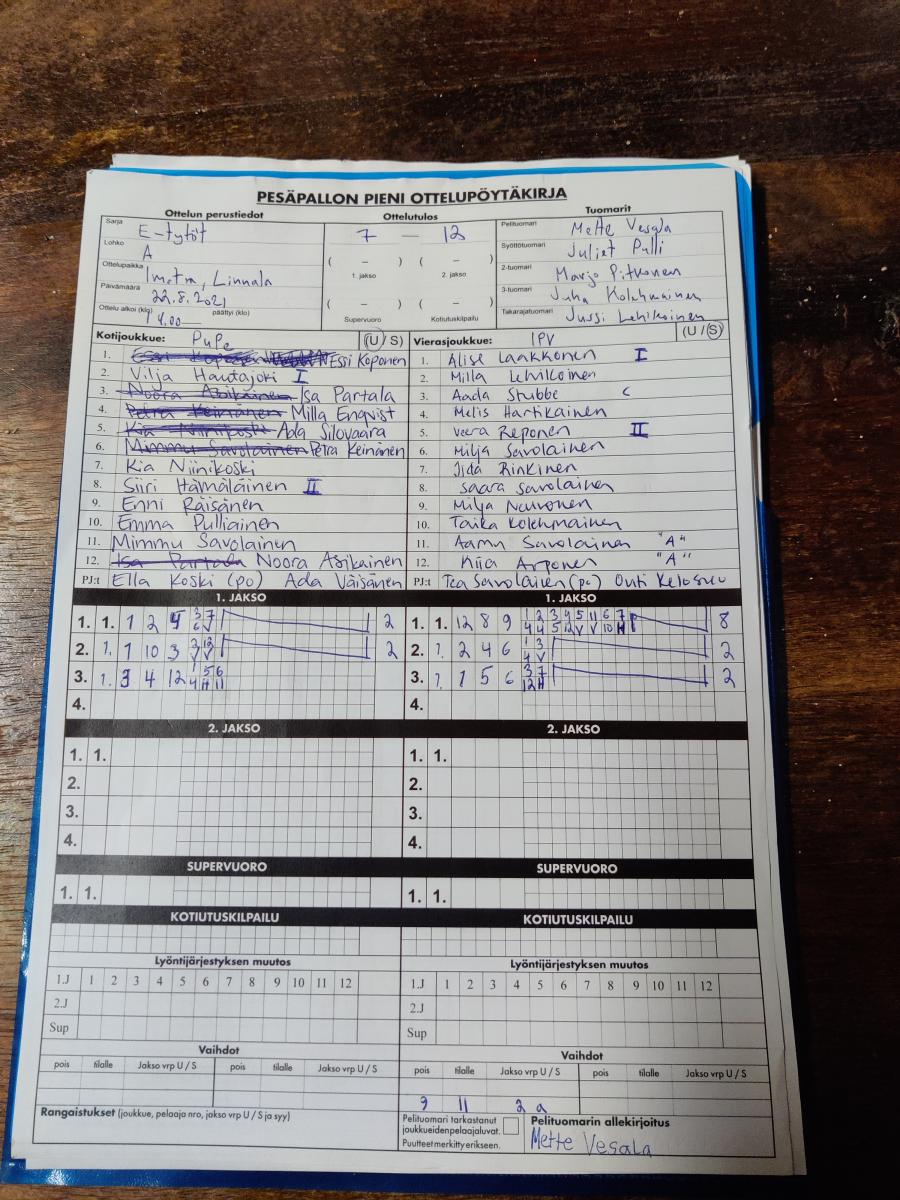 PESÄPALLON PIENI OTTELUPÖYTÄKIRJA
Ottelun perustiedot
Sarja E-tytöt
Lohko A
Ottelupaikka Imatra, Linnala
Päivämäärä 22.8.2021
Ottelu alkoi (klo) 14.00 päättyi (klo)
Ottelutulos
7 — 12
( – ) ( – )
1. jakso 2. jakso
( – ) ( – )
Supervuoro Kotiutuskilpailu
Tuomarit
Pelituomari Mette Vesala
Syöttötuomari Juliet Pulli
2-tuomari Marjo Pitkonen
3-tuomari Juha Kolehmainen
Takarajatuomari Jussi Lehikoinen
Kotijoukkue: PuPe (U / S)
1. Essi Koponen
2. Vilja Hautajoki I
3. Noora Asikainen Isa Partala
4. Petra Keinänen Milla Enqvist
5. Kia Niinikoski Ada Silovaara
6. Mimmu Savolainen Petra Keinänen
7. Kia Niinikoski
8. Siiri Hämäläinen II
9. Enni Räisänen
10. Emma Pulliainen
11. Mimmu Savolainen
12. Isa Partala Noora Asikainen
PJ:t Ella Koski (po) Ada Väisänen
Vierasjoukkue: IPV (U / S)
1. Alise Laakkonen I
2. Milla Lehikoinen
3. Aada Stubbe C
4. Melis Hartikainen
5. Veera Reponen II
6. Milja Savolainen
7. Iida Rinkinen
8. Saara Savolainen
9. Milja Neuvonen
10. Taika Kolehmainen
11. Aamu Savolainen "A"
12. Kiia Arponen "A"
PJ:t Tea Savolainen (po)
1. JAKSO
1. 1. 1 2 4 3 7 2
6 V
2. 1. 1 10 3 2 12 2
V V
3. 1. 3 4 12 1 5 6
4 H 11
4.
2. JAKSO
1. 1.
2.
3.
4.
SUPERVUORO
1. 1.
KOTIUTUSKILPAILU
Lyöntijärjestyksen muutos
1.J 1 2 3 4 5 6 7 8 9 10 11 12
2.J
Sup
Vaihdot
pois tilalle Jakso vrp U / S pois tilalle Jakso vrp U / S
Rangaistukset (joukkue, pelaaja nro, jakso vrp U / S ja syy)
1. JAKSO
1. 1. 12 8 9 1 2 3 4 5 11 6 7 8
4 4 5 12 V V 10 H
2. 1. 2 4 6 1 3 2
4 V
3. 1. 1 5 6 3 7 2
12 H
4.
2. JAKSO
1. 1.
2.
3.
4.
SUPERVUORO
1. 1.
KOTIUTUSKILPAILU
Lyöntijärjestyksen muutos
1.J 1 2 3 4 5 6 7 8 9 10 11 12
2.J
Sup
Vaihdot
pois tilalle Jakso vrp U / S pois tilalle Jakso vrp U / S
9 11 2 a
Pelituomari tarkastanut
joukkueiden pelaajaluvat.
Puutteet merkitty erikseen.
Pelituomarin allekirjoitus
Mette Vesala